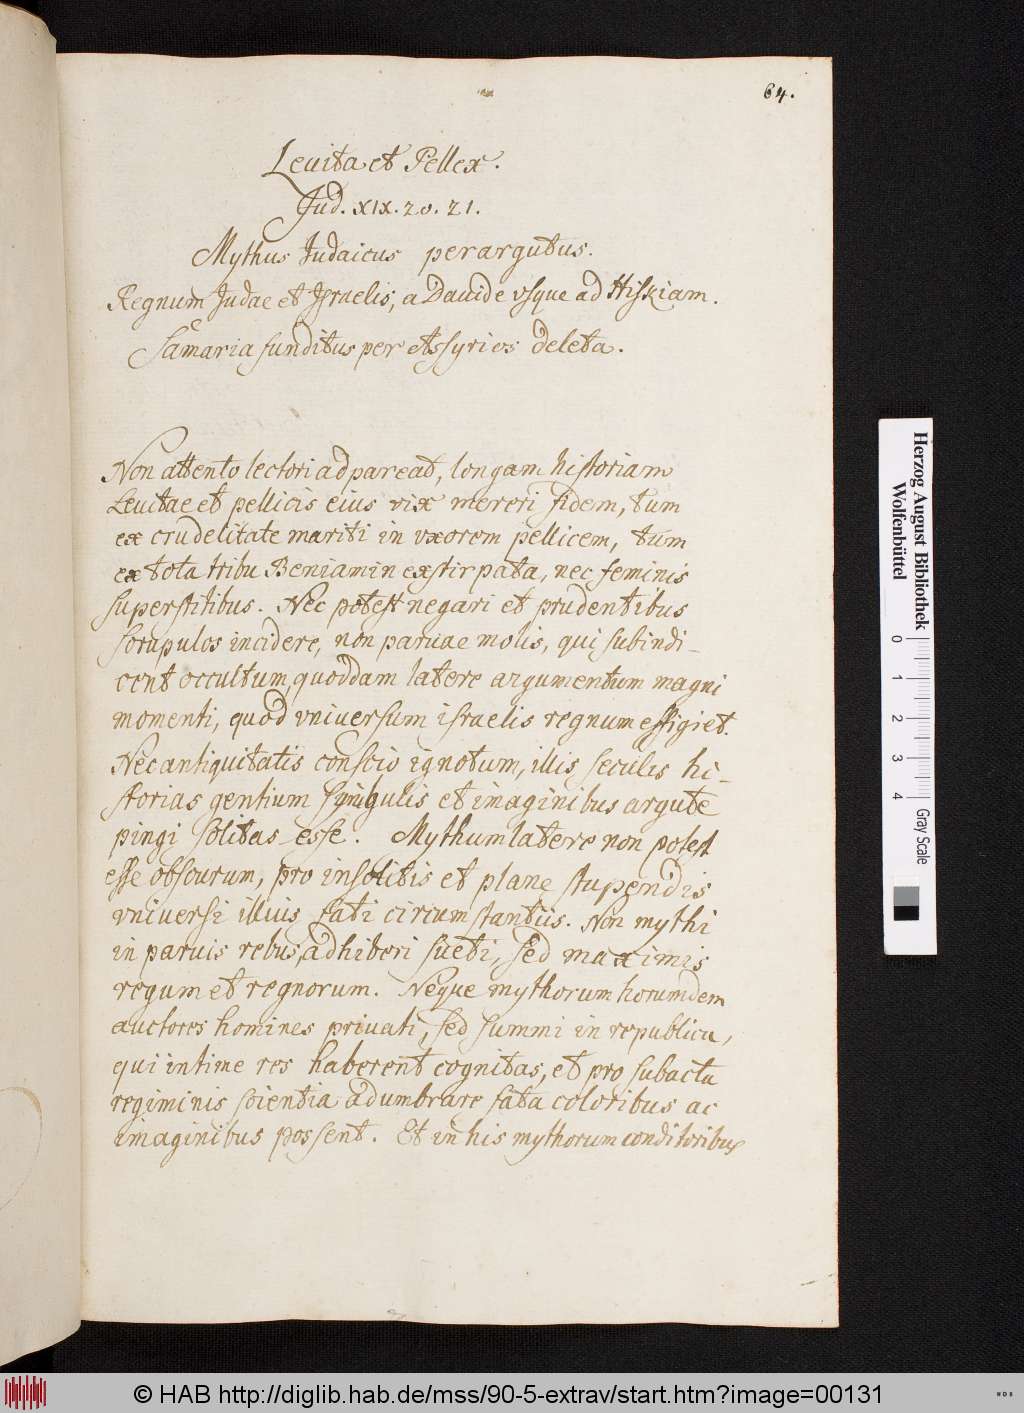 64.
Leuita et Pellex.
Jud. XIX. 20. 21.
Mythus Judaicus perargutus.
Regnum Judae et Israelis, a Dauide vsque ad Hiskiam.
Samaria funditus per Assyrios deleta.
Non attento lectori adpareat, longam historiam
Leuitae et pellicis eius vix mereri fidem, tum
ex crudelitate mariti in vxorem pellicem, tum
ex tota tribu Beniamin exstirpata, nec feminis
superstitibus. Nec potest negari et prudentibus
scrupulos incidere, non paruae molis, qui subindi-
cent occultum quoddam latere argumentum magni
momenti, quod vniuersum israelis regnum effigiet.
Nec antiquitatis conscio ignotum, illis seculis hi-
storias gentium singulis et imaginibus argute
pingi solitas esse. Mythum latere non potest
esse obscurum, pro insolitis et plane stupendis
vniuersi illius fati circumstantiis. Non mythi
in paruis rebus, adhiberi sueti, sed maximis
regum et regnorum. Neque mythorum horumdem
auctores homines priuati, sed summi in republica,
qui intime res haberent cognitas, et pro subacta
regiminis scientia adumbrare fata coloribus ac
imaginibus possent. Et in his mythorum conditoribus
Herzog August Bibliothek
Wolfenbüttel
0 1 2 3 4
Gray Scale
© HAB http://diglib.hab.de/mss/90-5-extrav/start.htm?image=00131